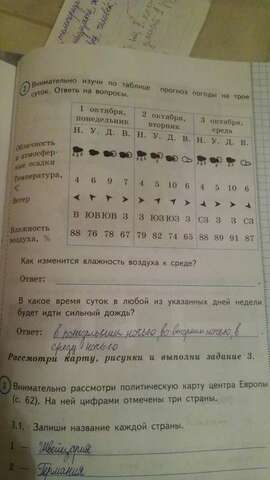 2 Внимательно изучи по таблице прогноз погоды на трое
суток. Ответь на вопросы.
1 октября, понедельник 2 октября, вторник 3 октября, среда
Н. У. Д. В. Н. У. Д. В. Н. У. Д. В.
Облачность
и атмосфер-
ные осадки
Температура, °С 4 6 9 7 4 5 10 6 4 5 10 6
Ветер
В ЮВ ЮВ З З ЮЗ ЮЗ З СЗ З З СЗ
Влажность
воздуха, % 88 76 78 67 79 82 74 65 88 89 91 87
Как изменится влажность воздуха к среде?
Ответ:
В какое время суток в любой из указанных дней недели
будет идти сильный дождь?
Ответ: в понедельник ночью, во вторник ночью, в
среду ночью
Рассмотри карту, рисунки и выполни задание 3.
3 Внимательно рассмотри политическую карту центра Европы
(с. 62). На ней цифрами отмечены три страны.
3.1. Запиши название каждой страны.
1 – Швейцария
2 – Германия